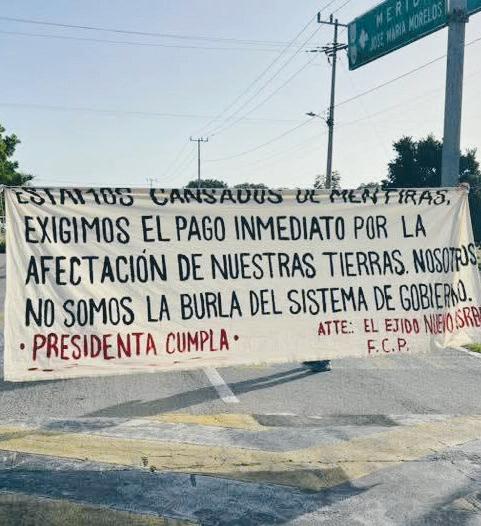 MERIDA
JOSE MARIA MORELOS
ESTAMOS CANSADOS DE MENTIRAS,
EXIGIMOS EL PAGO INMEDIATO POR LA
AFECTACIÓN DE NUESTRAS TIERRAS. NOSOTROS
NO SOMOS LA BURLA DEL SISTEMA DE GOBIERNO.
• PRESIDENTA CUMPLA •
ATTE: EL EJIDO NUEVO ISRAEL
F.C.P.